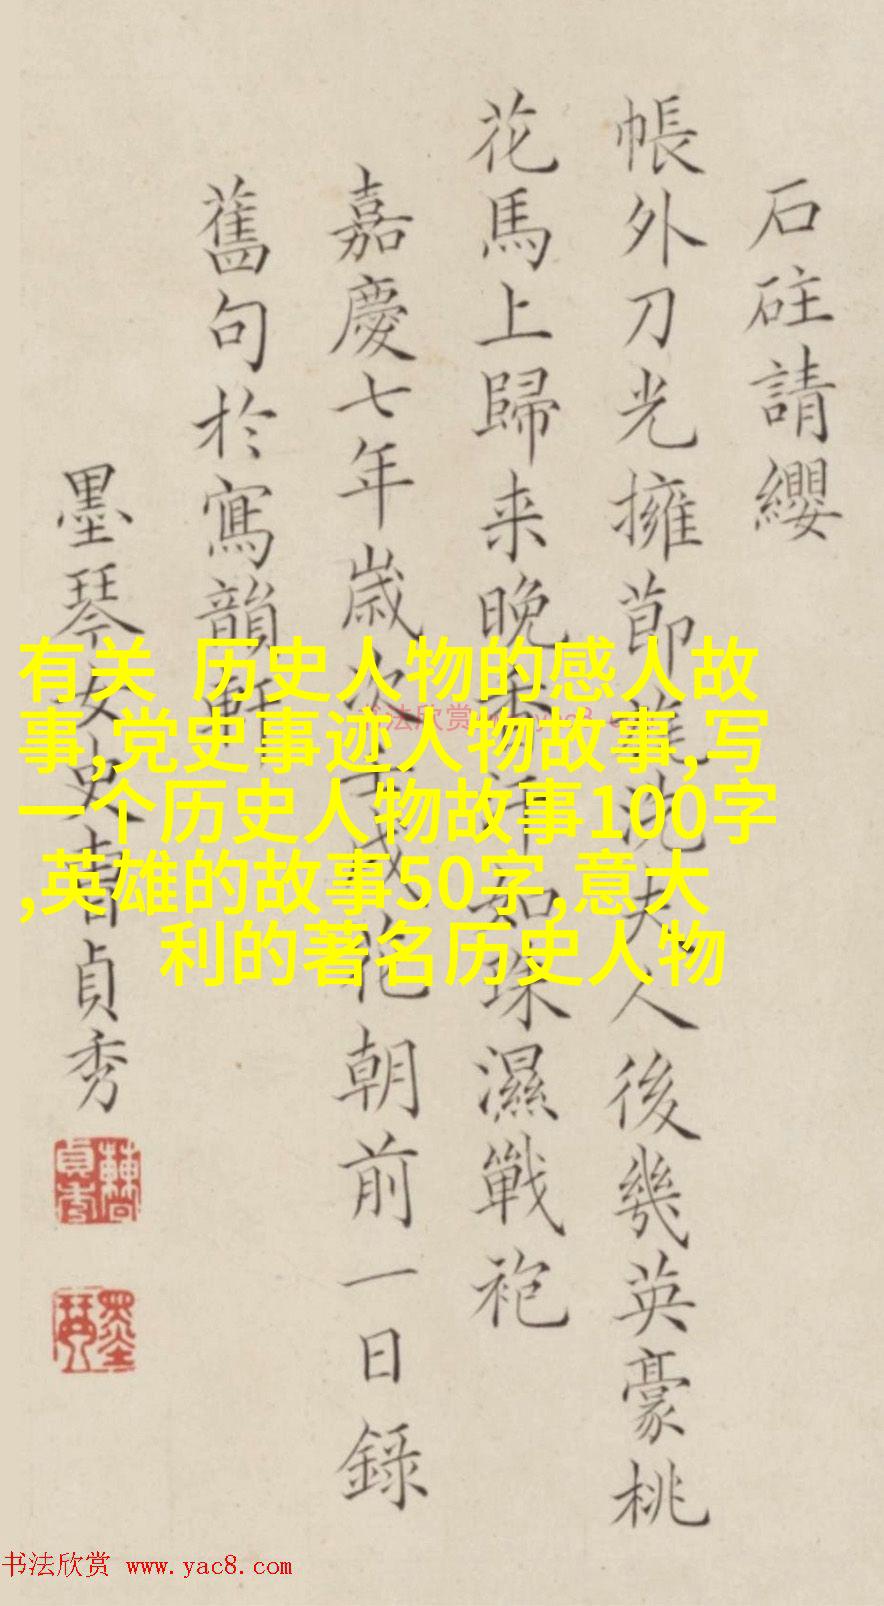 石砫請纓
帳外刀光擁莭旄洗夫人後幾英豪桃
花馬上歸来晚香汗如珠濕戰袍
嘉慶七年歲次壬戌花朝前一日錄
舊句於寫韻軒
墨琴女史曹貞秀
墨琴
有关 历史人物的感人故
事,党史事迹人物故事,写
一个历史人物故事100字
,英雄的故事50字,意大
利的著名历史人物
书法欣赏 www.yac8.com